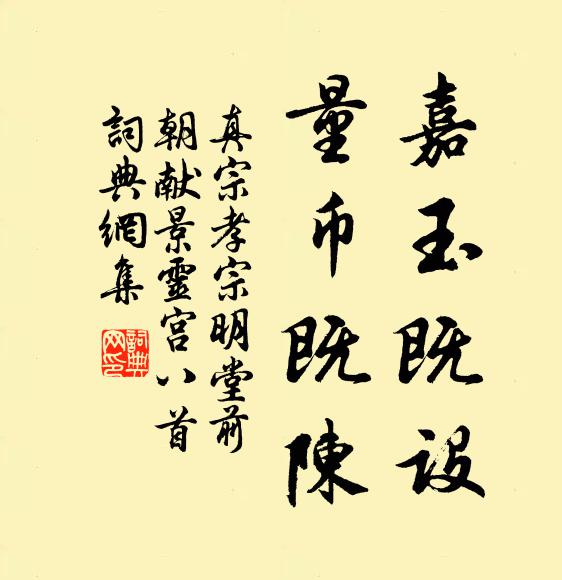 嘉玉既设
量币既陳
真宗孝宗明堂前
朝献景靈宫八首
詞典網集
詞典網印